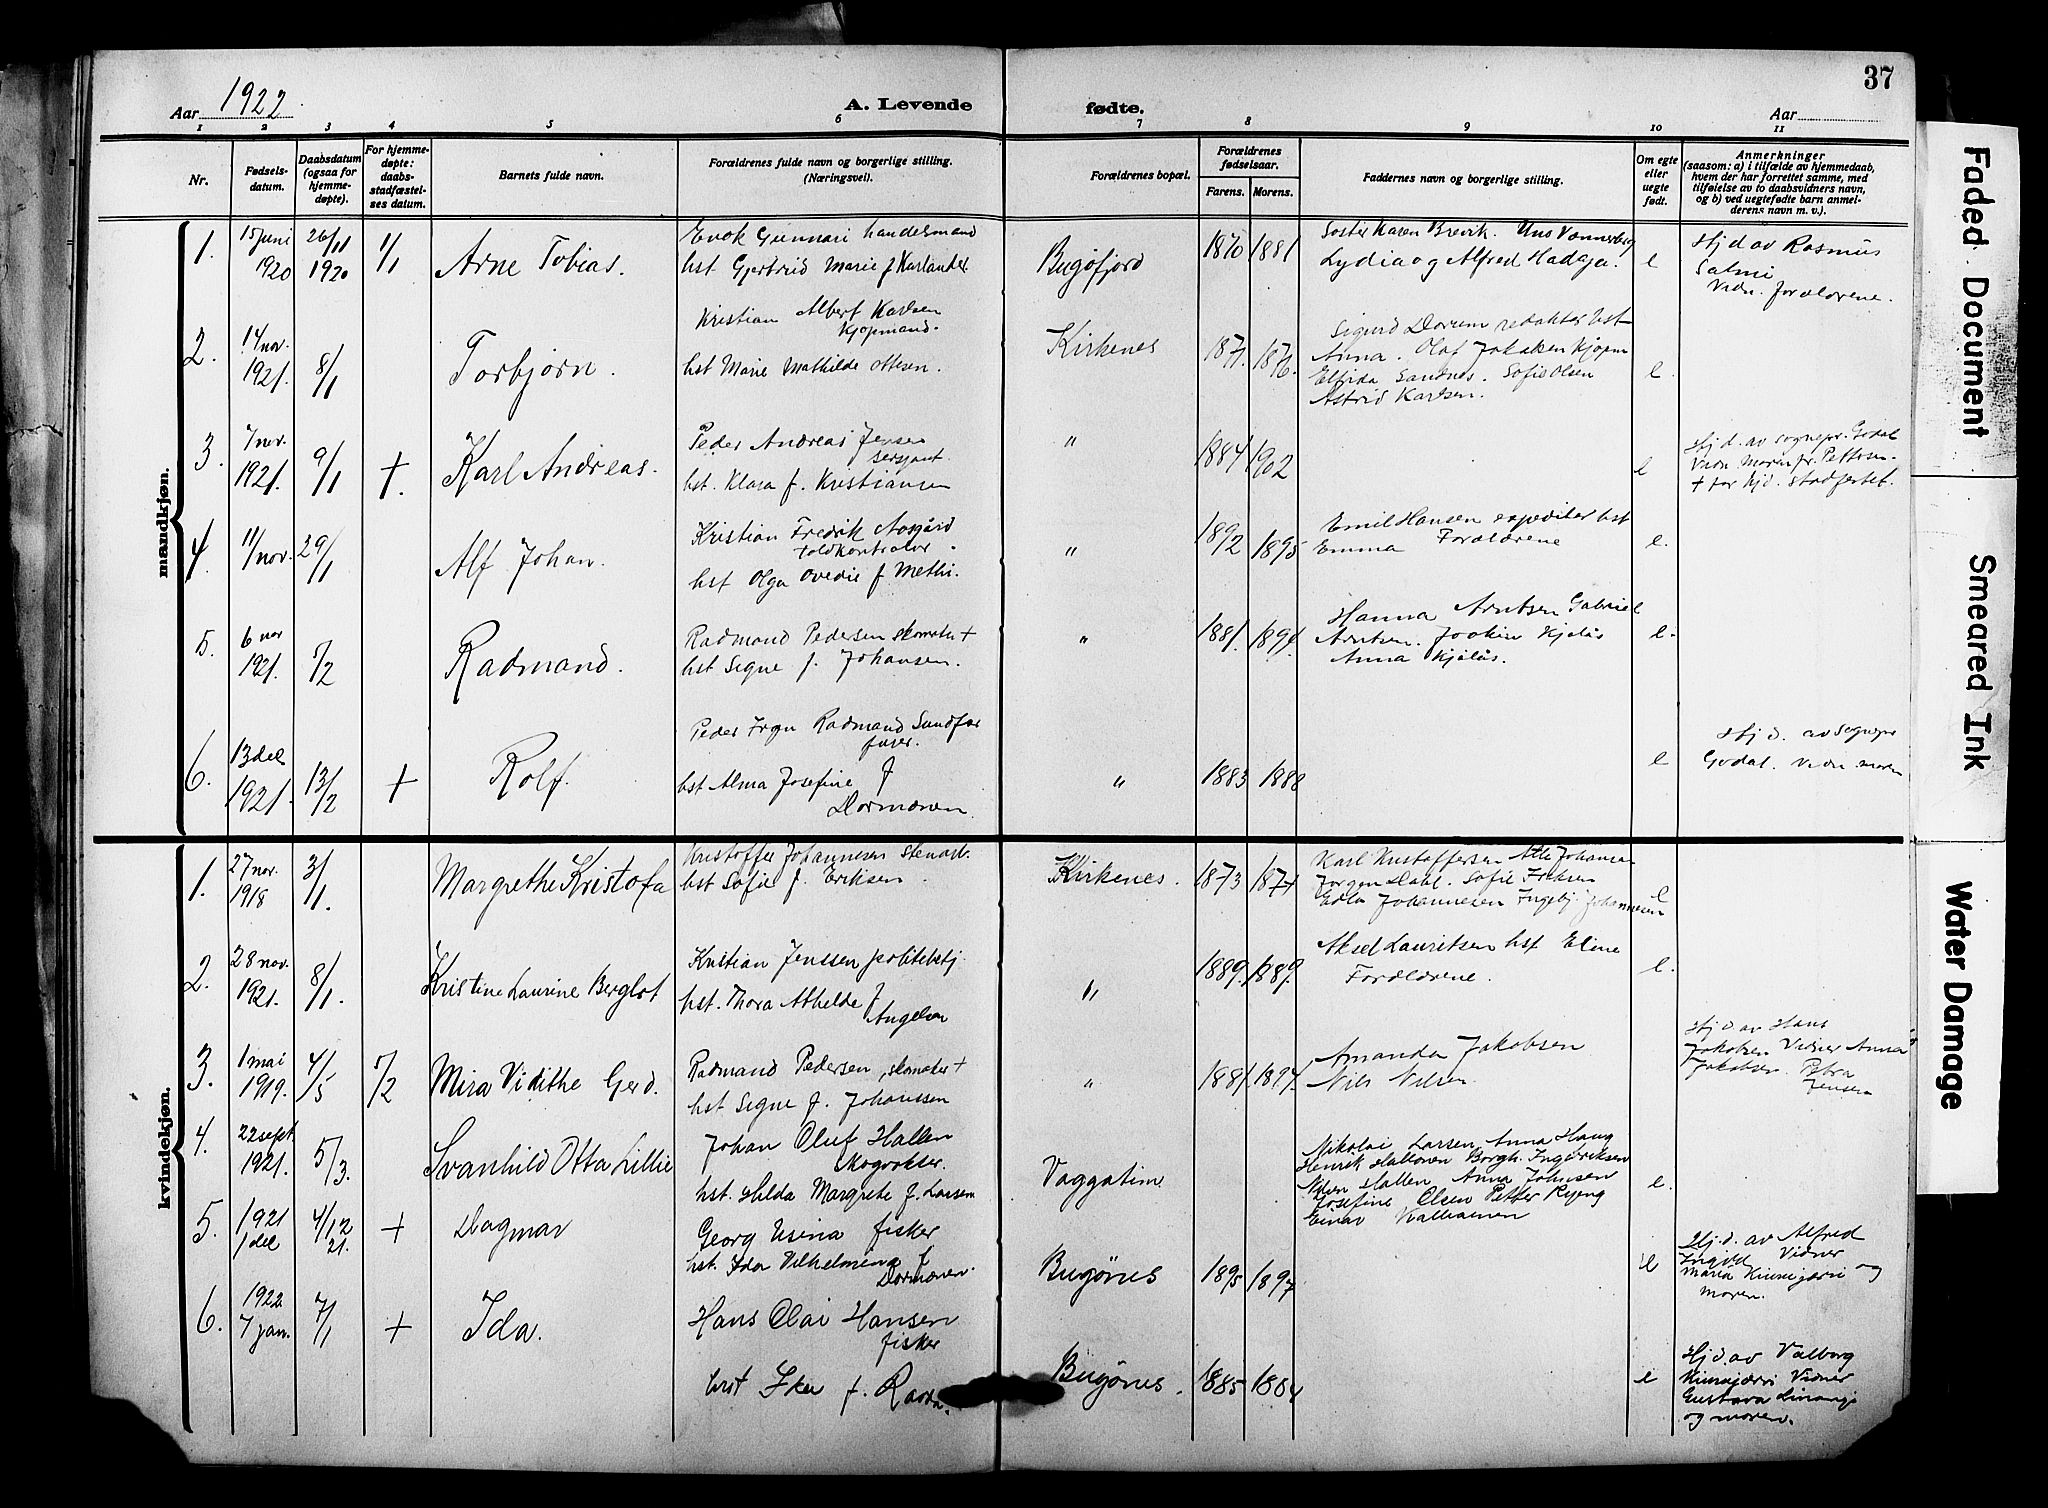 37
Aar 1922
A. Levende fødte.
Aar
1 2 3 4 5 6 7 8 9 10 11
Nr.
Fødsels-
datum.
Daabsdatum
(ogsaa for
hjemme-
døpte).
For hjemme-
døpte:
daabs-
stadfæstel-
ses datum.
Barnets fulde navn.
Forældrenes fulde navn og borgerlige stilling.
(Næringsvei).
Forældrenes bopæl.
Forældrenes
fødselsaar.
Farens. Morens.
Faddernes navn og borgerlige stilling.
Om egte
eller
uegte
født.
Anmerkninger
(saasom: a) i tilfælde av hjemmedaab,
hvem der har forrettet samme, med
tilføielse av to daabsvidners navn,
og b) ved uegtefødte barn anmel-
derens navn m. v.).
mandkjøn.
1. 15 juni 1920 26/11 1920 1/1 Arne Tobias.
Enok Gunnari handelsmand
hst Gjertrid Marie f Karlander
Bugöfjord 1870 1881
Søster Karen Brevik.
Lydia og Alfred Hadaja. e
Hj d av Rasmus
Salmi
Vidn. forældrene.
2. 14 nov. 1921. 8/1 Torbjørn.
Kristian Albert Karlsen
Kjøpmand.
hst Marie Mathilde Ottesen.
Kirkenes 1871. 1876.
Sigurd Dorum redaktør hst
Anna. Olaf Jakobsen Kjøpm
Elfrida Sandnes. Sofie Olsen
Astrid Karlsen. e.
3. 7 nov. 1921. 9/1 +. Karl Andreas.
Peder Andreas Jensen
sersjant
hst. Klara f. Kristiansen
" 1884 1902 e
Hj. d. av sognepr. Godal
Vidn. Moren fr. Pettersen
+ før hjd. stadfestet.
4. 11/nov. 29/1 Alf Johan.
Kristian Fredrik Aagård
Toldkontrolør.
hst Olga Ovedie f Methi.
" 1892 1895
Emil Hansen expeditør hst
Emma Forældrene e.
5. 6 nov 1921. 7/2 Radmand.
Radmand Pedersen skomaker +
hst Signe f. Johansen.
" 1881. 1894.
Hanna Arntsen Gabriel
Arntsen. Joakim Kjelås
Anna Kjelås. e.
6. 13 dec 1921. 13/2 + Rolf.
Peder Irgn Radmand Sundfær
hst Alma Josefine f
Dormænen
" 1883 1888 e
Hj d. av Sognepr
Godal. Vidn. moren
kvindekjøn.
1. 27 nov. 1918 3/1. Margrethe Kristofa
Kristoffer Johannesen stenarb.
hst Sofie f. Eriksen.
Kirkenes. 1873 1877
Karl Kristoffersen Atle Johansen
Jørgen Dahl. Sofie Eriksen
Edla Johannesen Ingebj. Johannesen e
2. 28 nov. 1921. 8/1. Kristine Laurine Berglot
Kristian Jenssen politibetj.
hst. Thora Athelde f
Angelsen
" 1889. 1889.
Aksel Lauritsen hst Eline
Forældrene. e.
3. 1 mai 1919. 4/5 7/2 Mira Vidithe Gerd.
Radmand Pedersen, skomaker +
hst Signe f. Johanssen
" 1881. 1894.
Amanda Jakobsen
Nils Nilsen.
Hj. d av Hans
Jakobsen Vidner Anna
Jakobsen. Petra
Jensen
4. 22 sept. 1921. 5/3. Svanhild Otta Lillie
Johan Oluf Hallen
Skogvokter.
hst. Hilda Margrete f. Larsen
Vaggatim
Nikolai Larsen Anna Haug
Henrik Hallonen Borgh. Ingebriksen
Hallen Anna Johnsen
Josefine Olsen Petter Ryeng
Einar Kalliainen e.
5. 1921 1/dec 4/12 21. + Dagmar
Georg Usina fisker
hst. Ida Vilhelmina f
Dormænen.
Bugönes 1895 1897 e
Hj. d. av Alfred
Ingild Vidner
Maria Kinisjærvi og
moren.
6. 1922 7 jan. 7/1 + Ida.
Hans Olai Hansen
fisker
hst Ika f. Rauna.
Bugönes. 1885 1884 e
Hj d. av Valborg
Kinisjærvi Vidner
Gustava Linanji
og moren.
Faded Document
Smeared Ink
Water Damage